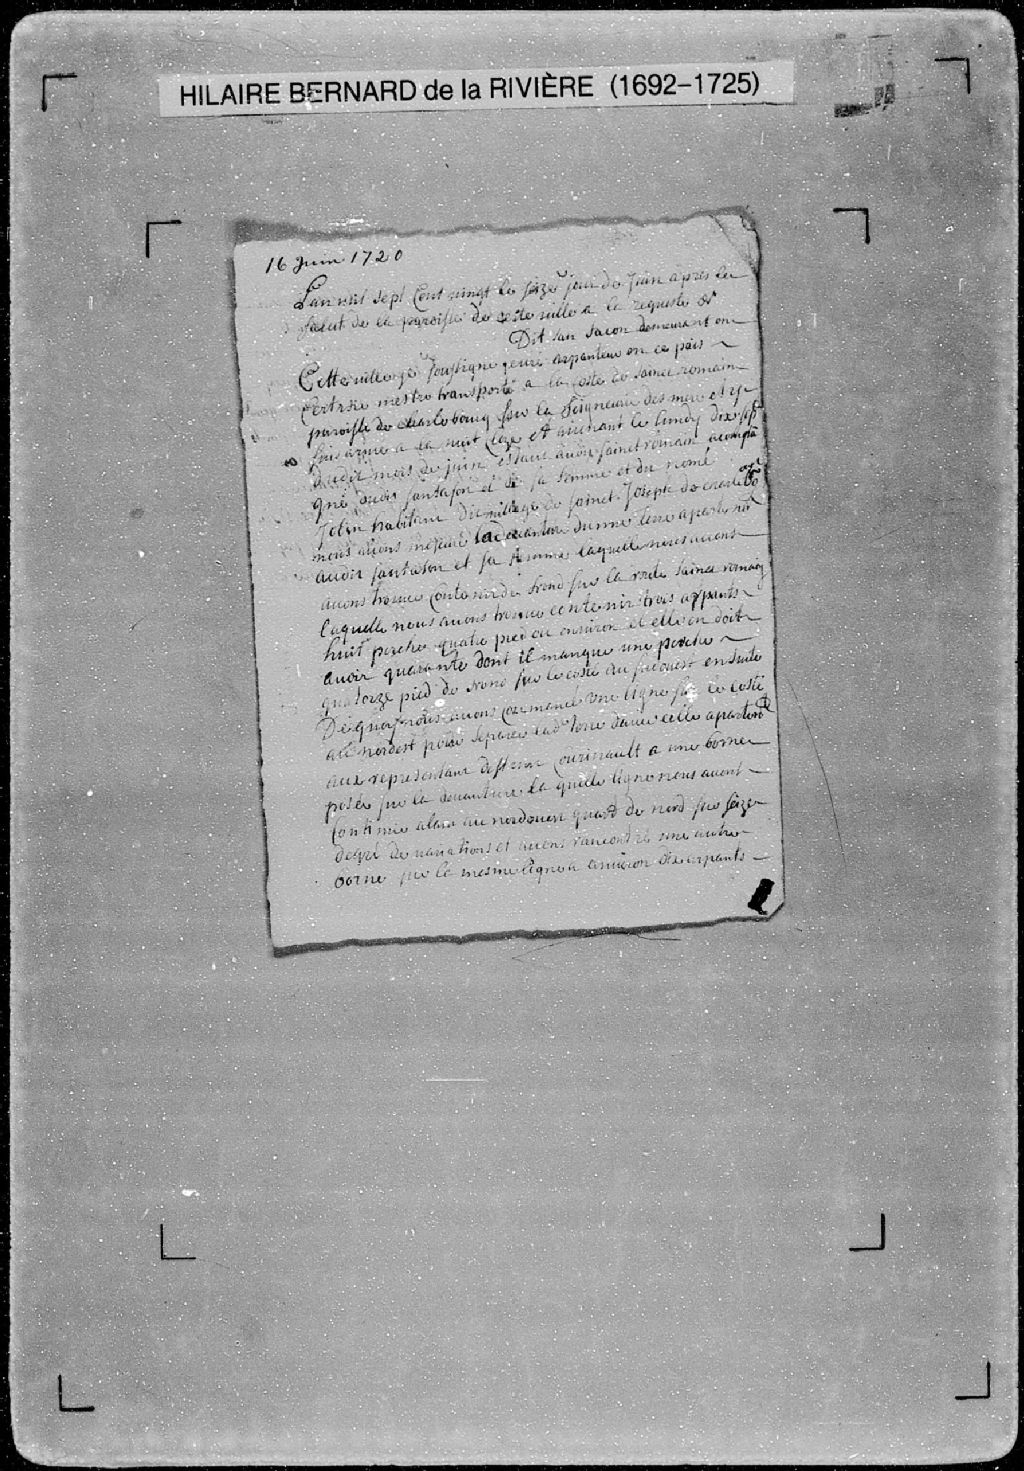 HILAIRE BERNARD de la RIVIÈRE (1692-1725)
16 Juin 1720
Lan mil sept Cent vingt le seize jour de Juin apres le
salut de la paroisse de ceste ville a la requeste de
Dit san sacon demeurant en
Cette ville je soussigne juré arpanteur en ce païs
Certifie mestre transporté a la coste de sainct romain
paroisse de charlebourg sur la seigneurie des
suis arivé a la nuit et avenant le lundy dix sept
dudit mois de juin sainct romain acompa
gné dudit sansason et de sa femme et du nomé
habitant du village de sainct Joseph de
nous avons mesuré la devanture dunne terre aparten
audit sansason et sa femme laquelle nous avons
avons trouvé contenir de front sur la route sainct romain
laquelle nous avons trouvé contenir trois arpants
huit perche quatre pied ou environ et elle en doit
avoir quarante dont il manque une perche
quatorze pied de front sur le costé du surouest en suite
De quoy nous avons commancé une ligne sur le costé
au nordest pour separer lad terre davec celle apartent
aux representant deffunt a une borne
posée sur la devanture la quelle ligne nous avont
Continué alant au nordouest quard de nord sur seize
degré de variations et avons rancontré une autre
borne sur la mesme ligne a environ dix arpants